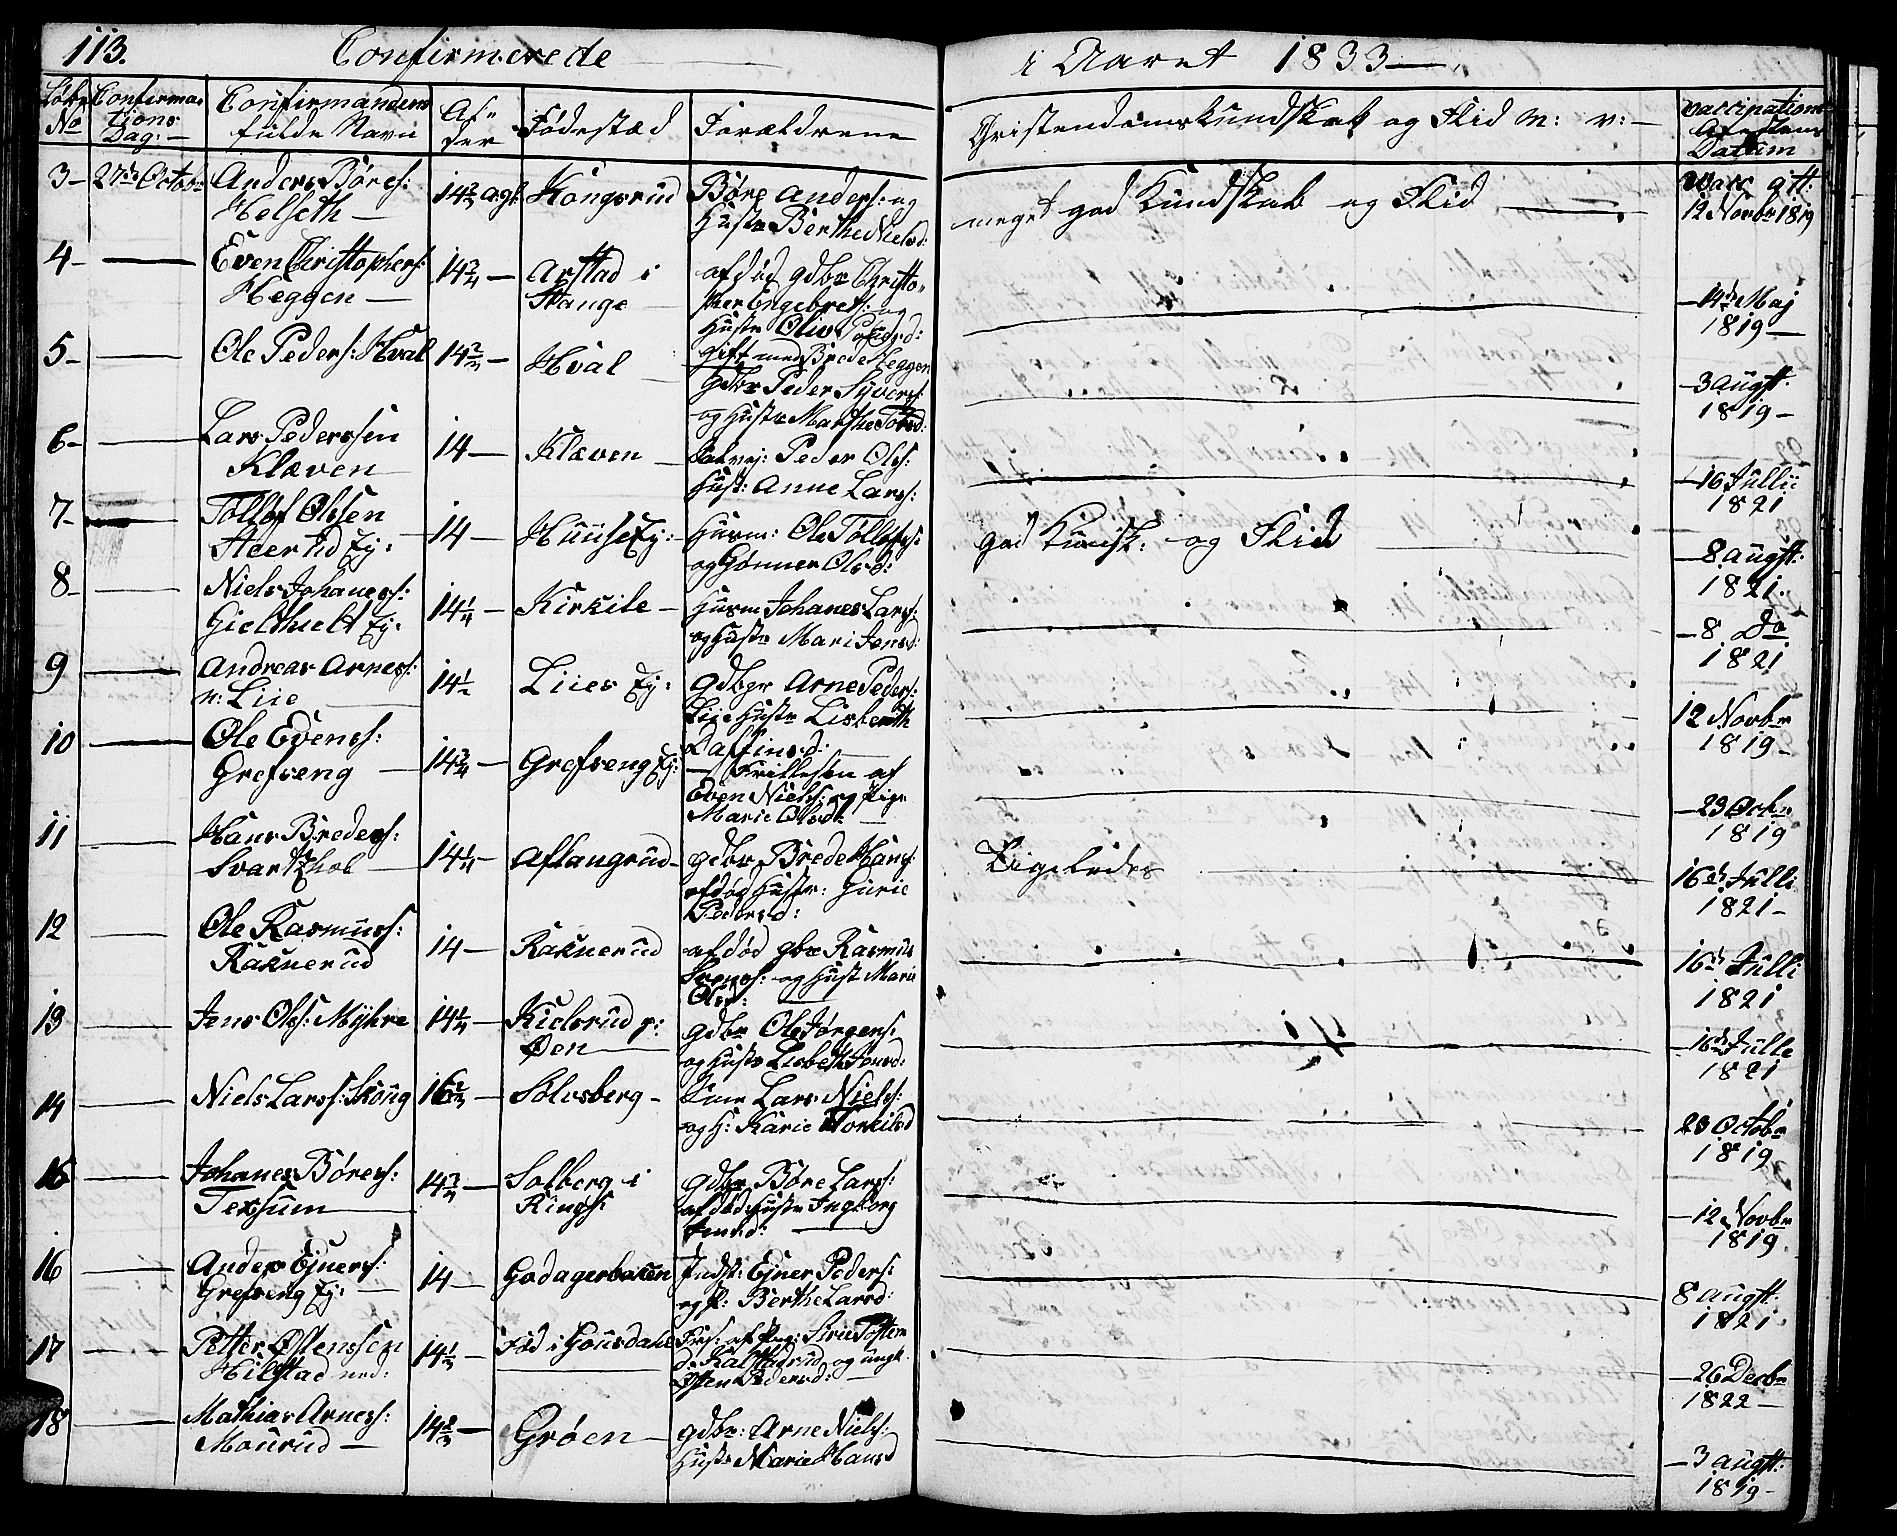 113. Confirmerede i Aaret 1833
Løbe No Confirmations Dag: Confirmandens fulde Navn Alder Fødestæd Forældrene Christendomskundskab og Flid m: v: Vaccinations Attestens Datum
3 27de Octobr Anders Børes: Helseth 14 2/3 agl: Kongsrud Børe Anders: og Hustr Berthe Nielsd: meget god Kundskab og Flid Vacc. att: 12 Novbr 1819
4 Even Christophers: Heggen 14 3/4 Arstad i Stange afdød gdbr Christopher Engebrets: og Hustr Oliv Pedersd: gift med Brede Heggen 14de Maj 1819
5 Ole Peders: Hval 14 2/3 Hval Gdbr Peder Syvers: og Hustr Marthe 3 augst. 1819
6 Lars Pederssen Klæven 14 Klæven Peder Ols: Hust: Anne Lars: 16 Jullii 1821
7 Tollef Olssen Ej: 14 Huuse Ej: Husm: Ole Tollefs: og Gunner Olsd: god Kundsk: og Flid 8 augst: 1821
8 Niels Johaness: Gielthuet Ej: 14 1/4 Kirkile Husm Johanes Lars: og Hustr Mari Jensd: 8 Do 1821
9 Andreas Arness: n: Liie 14 1/2 Liier Ej: gdbgr Arne Peders: Liie Hustr Lisbeth Daffinsd: 12 Novbr 1819
10 Ole Evenss: Grefseng 14 3/4 Grefseng Ej: Frillesøn af Even Niels: og Pige Marie Olsdr 23 Octr 1819
11 Hans Bredess: Svartzhol 14 1/4 Aslangrud gdbr Brede Hans: afdød Hustr: Gurie Pedersd: Ligeledes 16de Julli 1821
12 Ole Rasmuss: Raknerud 14 Raknerud afdød gbr Rasmus Svens: og Hust Marie Olsd: 16de Julli 1821
13 Jens Ols: Myhre 14 1/4 Kielsrud p: Øen gdbr Ole Jørgens: og Hustr Lisbeth Jensd: 16de Julle 1821
14 Niels Larss: Skoug 16 2/3 Solvsberg Lars Niels: og H: Karie Torkilsd 23 Octobr 1819
15 Johanes Børes: Texsum 14 3/4 Solberg i Rings: gdbr Børe Lars: afdød Hustr Ingborg 12 Novbr 1819
16 Anders Ejners: Grefseng Ej: 14 Godagerbaken Indst: Ejner Peders: og H: Berthe Larsd: 8 augst: 1821
17 Petter Østenssen Hilstad ned: 14 1/3 Fød i Gousdahl af Pig: Sirie d: og ungk Østen Pedersd: 26 Decbr 1822
18 Mathias Arness: Mourud 14 2/3 Grøen gdbr: Arne Niels: Hustr Marie Hansd 3 augst: 1819